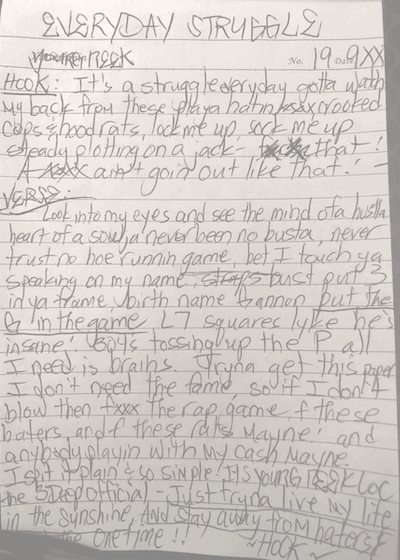 EVERYDAY STRUGGLE
REEK No. 19 Date 9XX
HOOK: It's a struggle everyday gotta watch
My back from these playa hatin xxxx crooked
cops & hood rats, lock me up, sock me up
steady plotting on a jack- that!
A xxxx ain't goin out like that! -
VERSE:
Look into my eyes and see the mind of a hustla
heart of a soulja never been no busta, never
trust no hoe runnin game, bet I touch ya
speaking on my name, straps bust put 3
in ya frame, birth name Gannon put the
G in the game L7 squares lyke he's
insane! Boys tossing up the P all
I need is brains. Tryna get this paper
I don't need the fame, so if I don't
blow then fxxx the rap game f these
haters, and f these rats Mayne! and
anybody playin with my cash Mayne.
I spit it plain & so simple, its YOUNG REEK LOC
the 3 Deep official - Just tryna live my life
in the sunshine, And stay away from haters &
the one time!! ~HOOK~